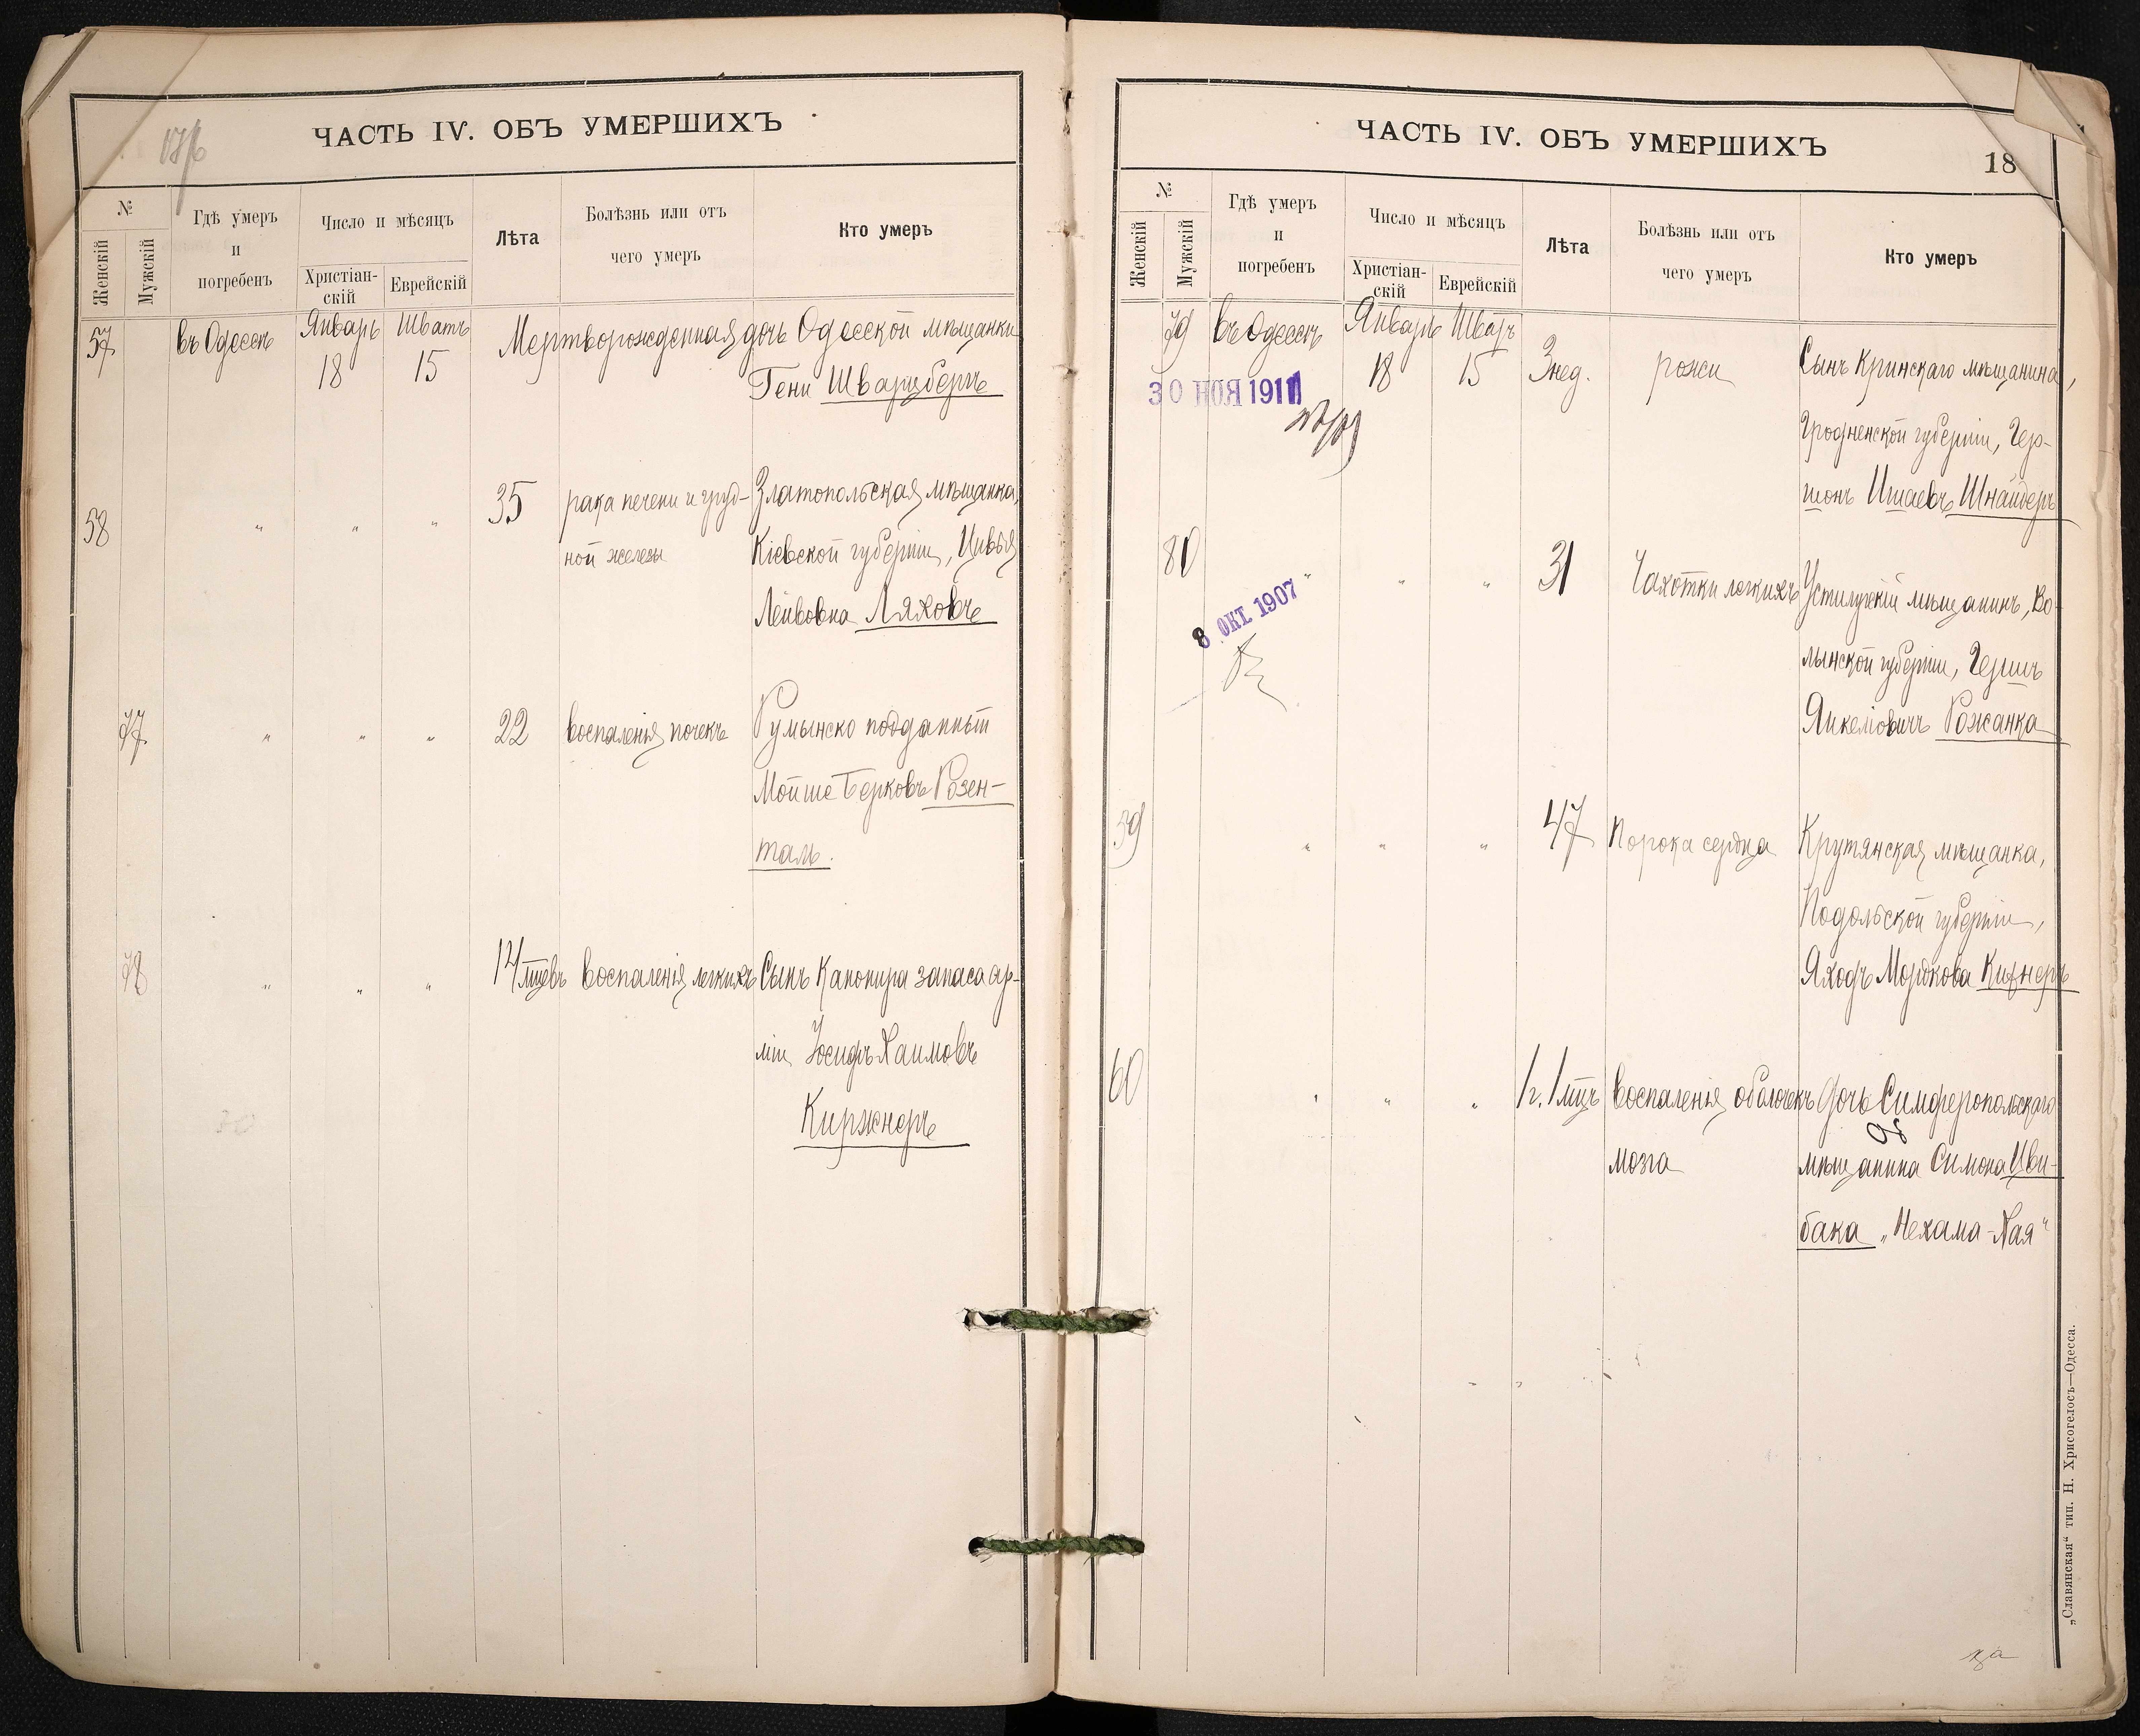 ЧАСТЬ IV. ОБЪ УМЕРШИХЪ
№
Женскій
Мужскій
Гдѣ умеръ
и
погребенъ
Число и мѣсяцъ
Христіан-
скій
Еврейскій
Лѣта
Болѣзнь или отъ
чего умеръ
Кто умеръ
57 въ Одессѣ Январь Шватъ Мертворожденная дочь Одесской мѣщанки
18 15 Гени Шварцбергъ
58 " " " 35 рака печени и груд- Златопольская мѣщанка,
ной железы Кіевской губерніи, Цивья
Лейбовна Ляховъ
77 " " " 22 воспаленія почекъ Румынско подданный
Мойше Берковъ Розен-
таль.
78 " " " 14 мцевъ воспаленія легкихъ Сынъ Канонира запаса ар-
міи Іосифъ Хаимовъ
Киржнеръ
ЧАСТЬ IV. ОБЪ УМЕРШИХЪ
18
№
Женскій
Мужскій
Гдѣ умеръ
и
погребенъ
Число и мѣсяцъ
Христіан-
скій
Еврейскій
Лѣта
Болѣзнь или отъ
чего умеръ
Кто умеръ
79 въ Одессѣ Январь Шватъ
18 15 3 нед. рожи Сынъ Кринскаго мѣщанина,
30 НОЯ 1911
Гродненской губерніи, Гер-
шонъ Ишаевъ Шнайдеръ
80 " " " 31 Чахотки легкихъ Устилугскій мѣщанинъ, Во-
8 ОКТ 1907
лынской губерніи, Гершъ
Янкеліовичъ Рожанка
59 " " " 47 Порока сердца Крутянская мѣщанка,
Подольской губерніи,
Яходъ Мордкова Кифнеръ
60 " " " 1 г. 1 мцъ воспаленія оболочекъ Дочь Симферопольскаго
мозга мѣщанина Симона Цви-
бака „Нехама-Хая"
„Славянская" тип. Н. Хрисогелосъ—Одесса.